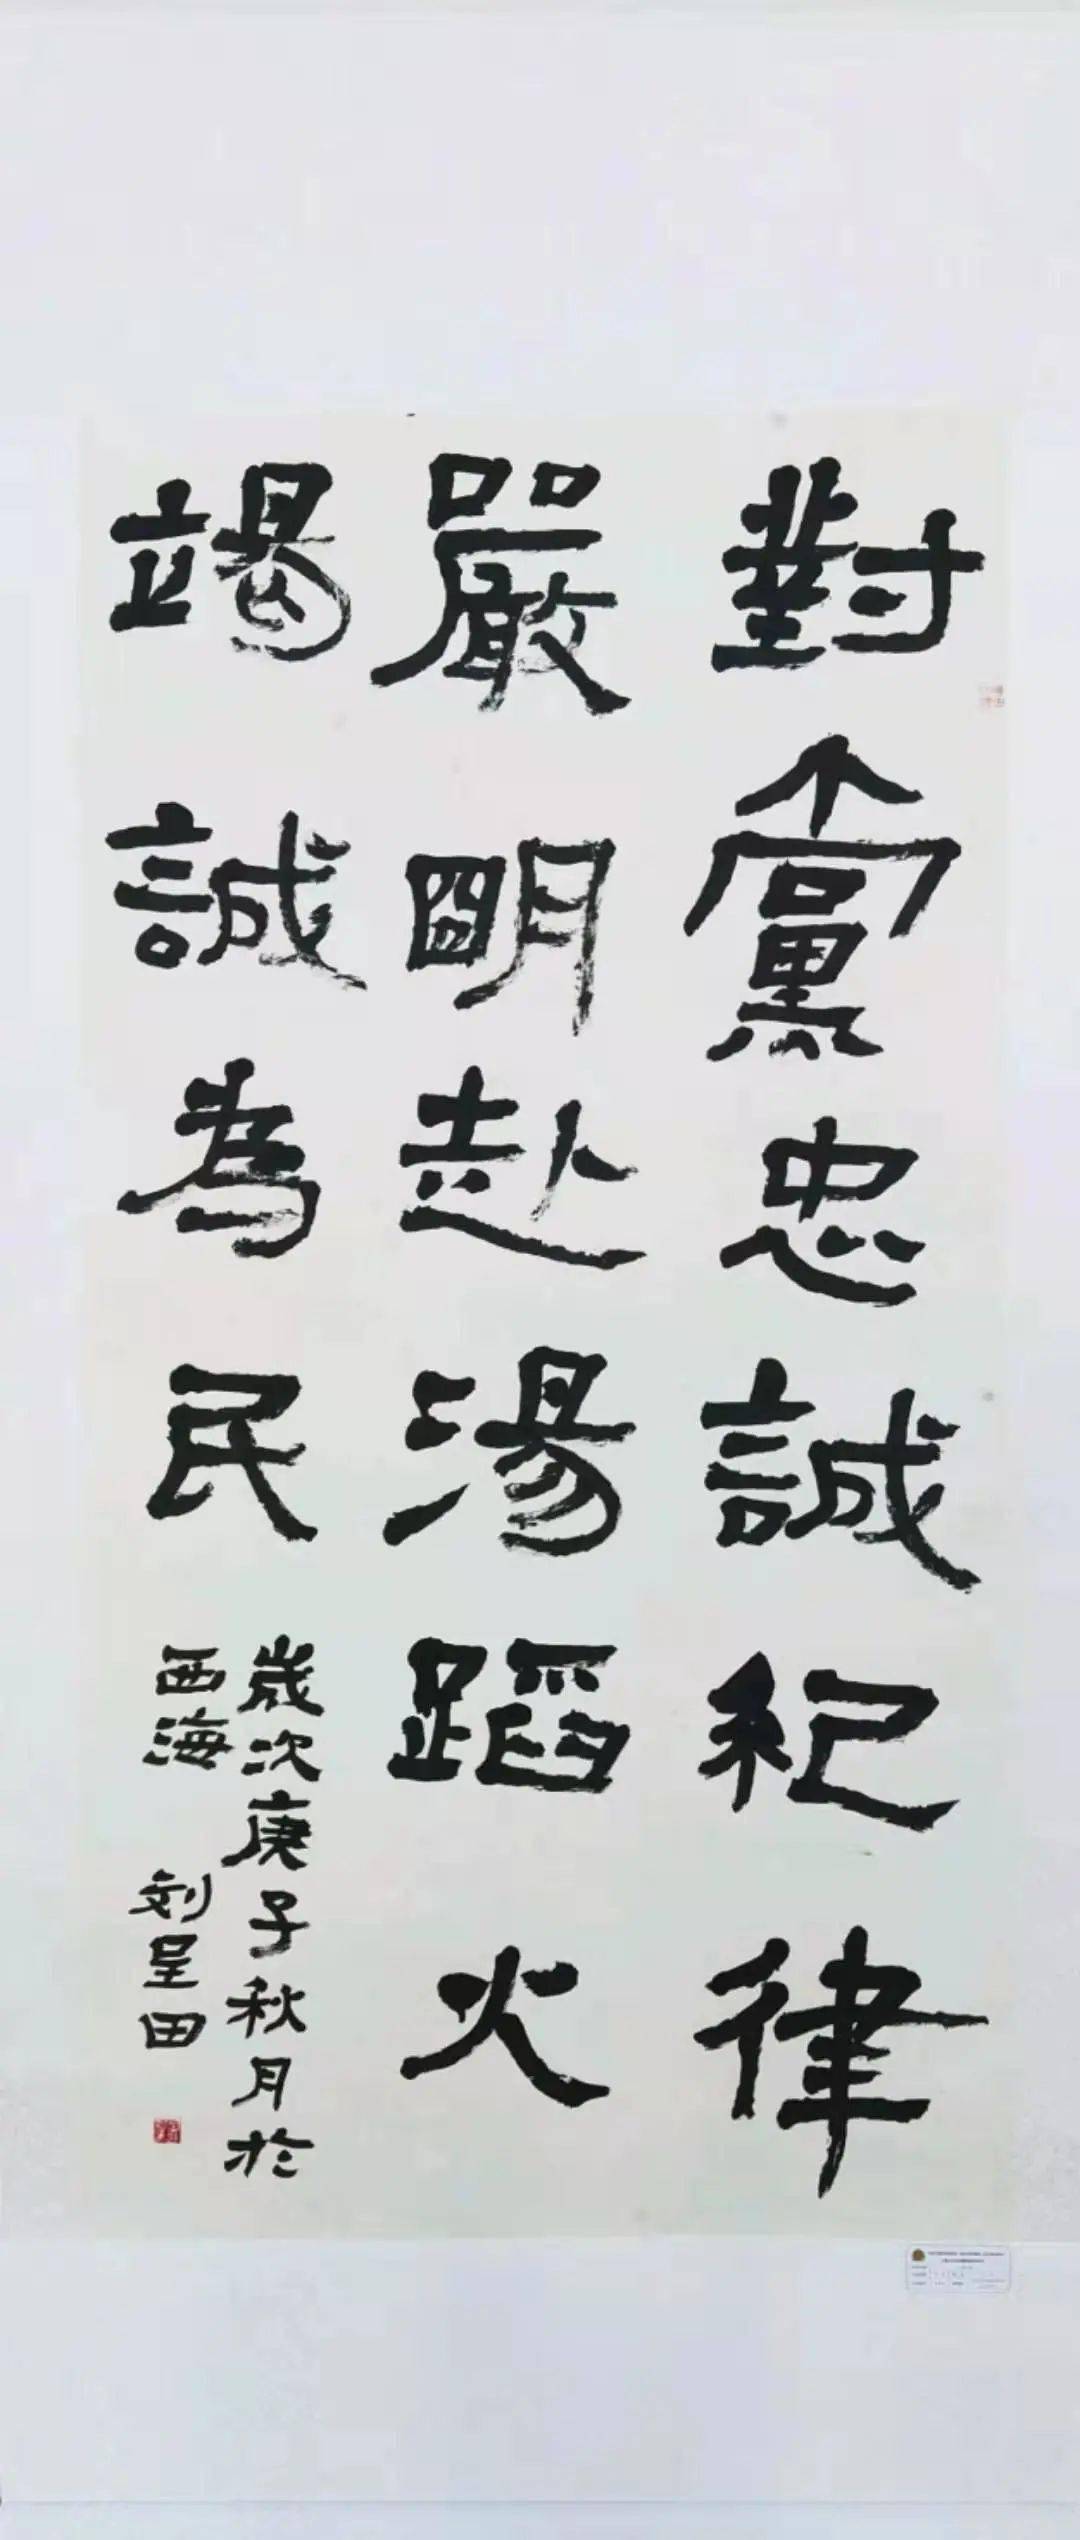 對黨忠誠紀律
嚴明赴湯蹈火
竭誠為民
歲次庚子秋月於
西海 刘呈田